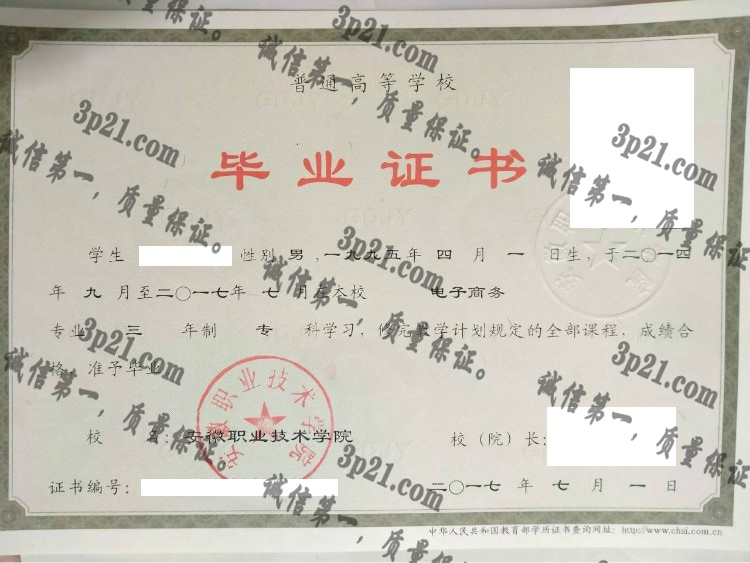 普通高等学校
毕业证书
学生 性别 男 ,一九九五年 四 月 一 日生,于二〇一四
年 九 月至二〇一七年 七 月在本校 电子商务
专业 三 年制 专 科学习,修完教学计划规定的全部课程,成绩合
格,准予毕业
安徽职业技术学院
校 名:安徽职业技术学院 校(院)长:
证书编号: 二〇一七年 七 月 一 日
中华人民共和国教育部学历证书查询网址:http://www.chsi.com.cn
3p21.com
诚信第一,质量保证。
3p21.com
诚信第一,质量保证。
3p21.com
诚信第一,质量保证。
3p21.com
诚信第一,质量保证。
3p21.com
诚信第一,质量保证。
3p21.com
诚信第一,质量保证。
3p21.com
诚信第一,质量保证。